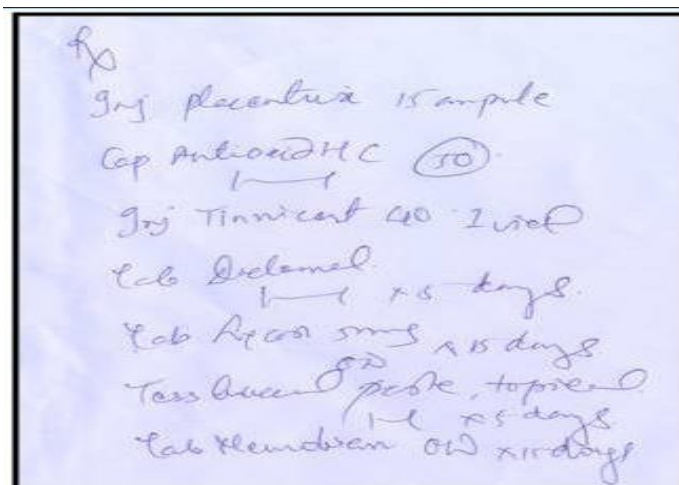 Rx
Inj Placentrix 15 ampule
Cap Antioxid HC (50)
1——1
Inj Tinnicort 40 1 vial
Tab
1——1 x 5 days.
Tab Lycort 5mg x 15 days
OD
Tess Buccal paste, topical
1—1 x 5 days
Tab OD x 15 days